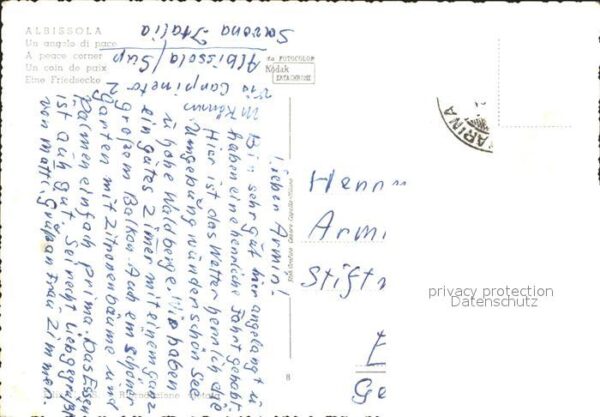 ALBISSOLA
Un angolo di pace
A peace corner
Un coin de paix
Eine Friedsecke
da FOTOCOLOR
Kodak
EKTACHROME
Savona Italia
Albissola/Sup
Via Carpineto 2
Lieber Armin!
Bin sehr gut hier angelangt u
haben eine herrliche Fahrt gehabt
Hier ist das Wetter herrlich die
Umgebung wunderschön See
u hohe Waldberge. Wir haben
ein gutes Zimer mit einem ganz
großem Balkon. Auch ein schöner
garten mit Zitronenbäume und
Palmen einfach prima. Das Essen
ist auch gut. Sei recht lieb gegrüßt
von Mutti, Grüß an Frau Zimmer.
Herrn
Armi
Stift
8
ARINA
Riproduzione vietata
privacy protection
Datenschutz